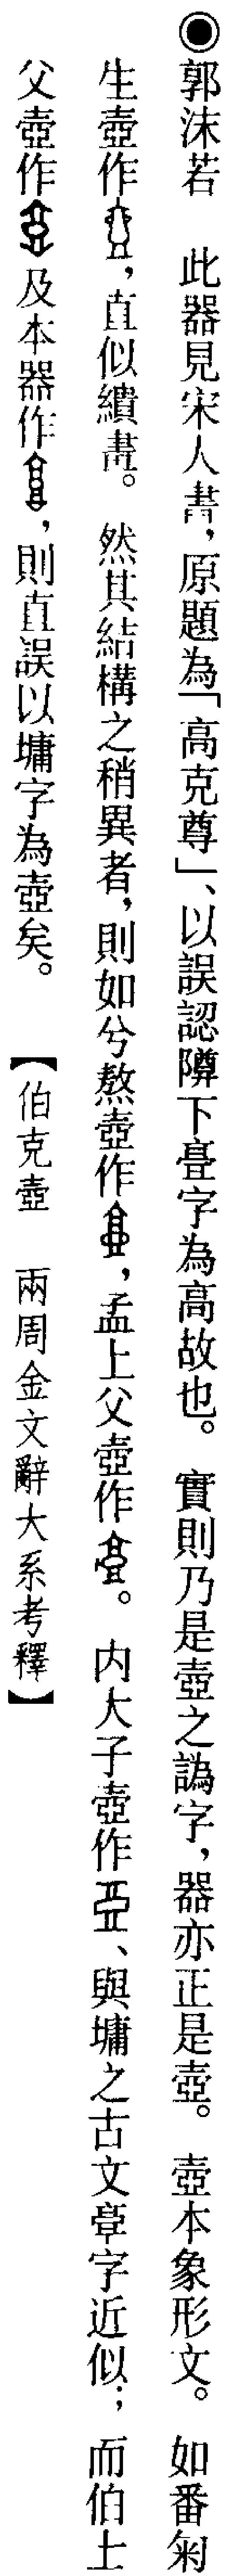 ◉郭沫若　此器見宋人書，原題為「高克尊」、以誤認隣下亯字為高故也。　實則乃是壺之譌字，器亦正是壺。　壺本象形文。　如番匊
生壺作，直似繢畫。　然其結構之稍異者，則如兮熬壺作，孟上父壺作。　內大子壺作、與墉之古文𩫖字近似；而伯上
父壺作及本器作，則直誤以墉字為壺矣。　【伯克壺　兩周金文辭大系考釋】